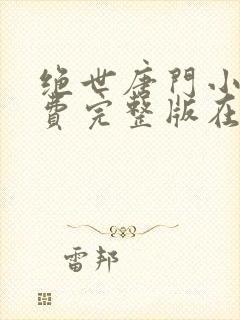 绝世唐門小
費完整版在
雷邦